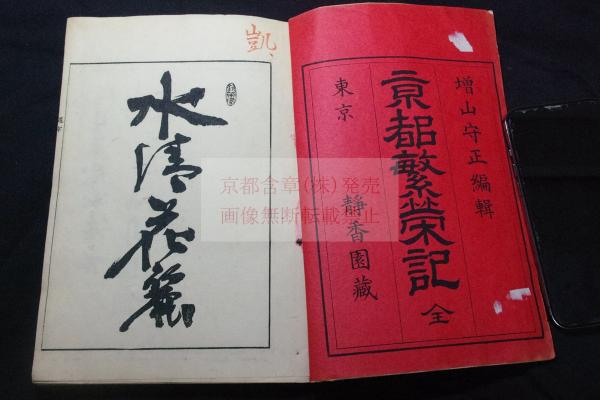 增山守正編輯
京都繁榮記 全
東京 靜香園藏
凱
水清花麗
京都含章(株)発売
画像無断転載禁止